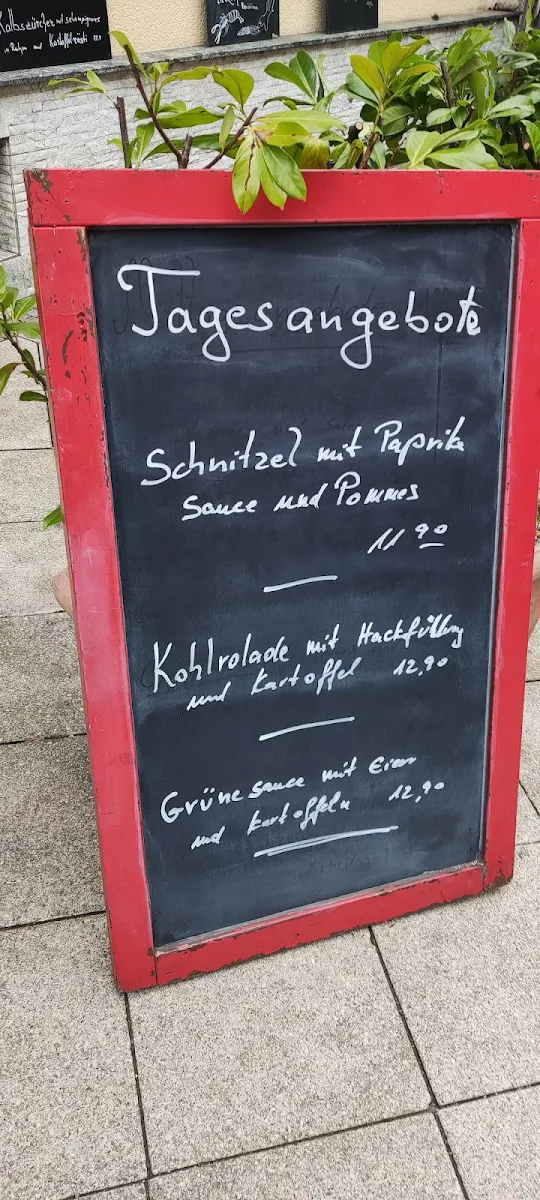 Kalbszürcher mit schampignons
in Rahm und Kartoffelrösti
Tagesangebote
Schnitzel mit Paprika
Sauce und Pommes
11 90
Kohlrolade mit Hackfüllung
und Kartoffel 12,90
Grüne sauce mit Eier
und Kartoffeln 12,90